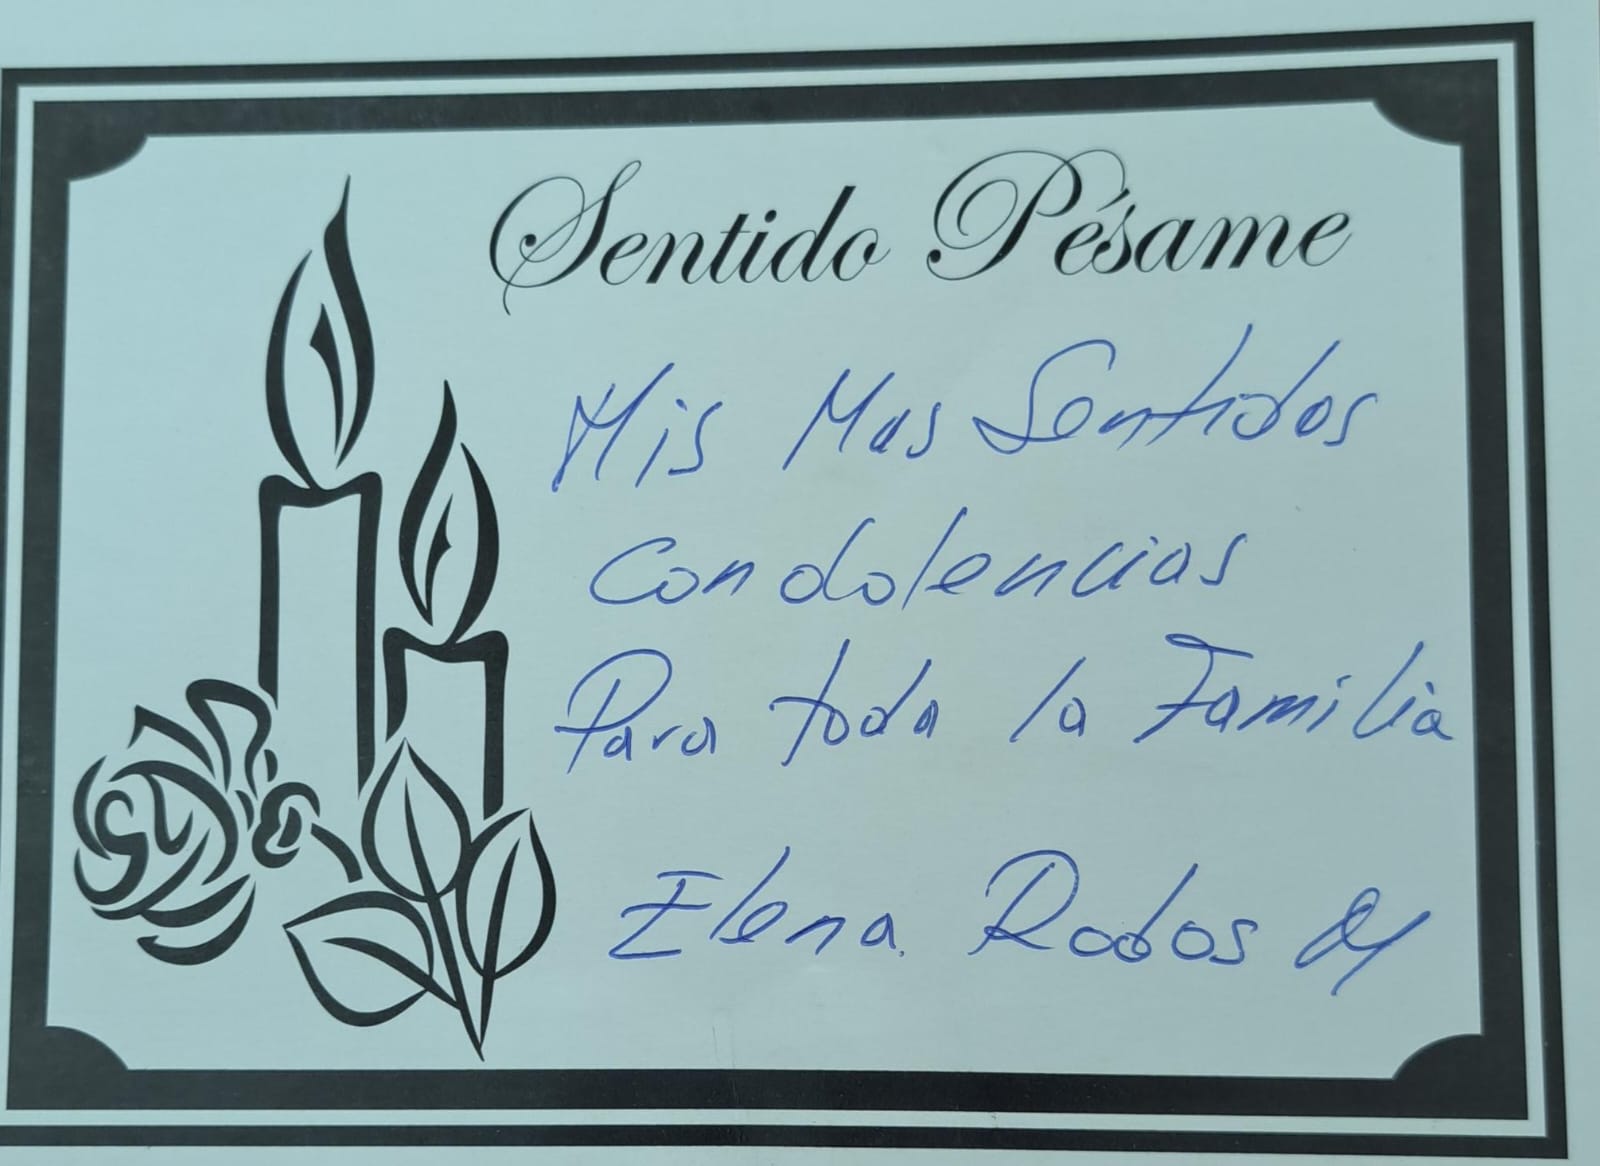 Sentido Pésame
Mis Mas Sentidos
Condolencias
Para toda la Familia
Elena